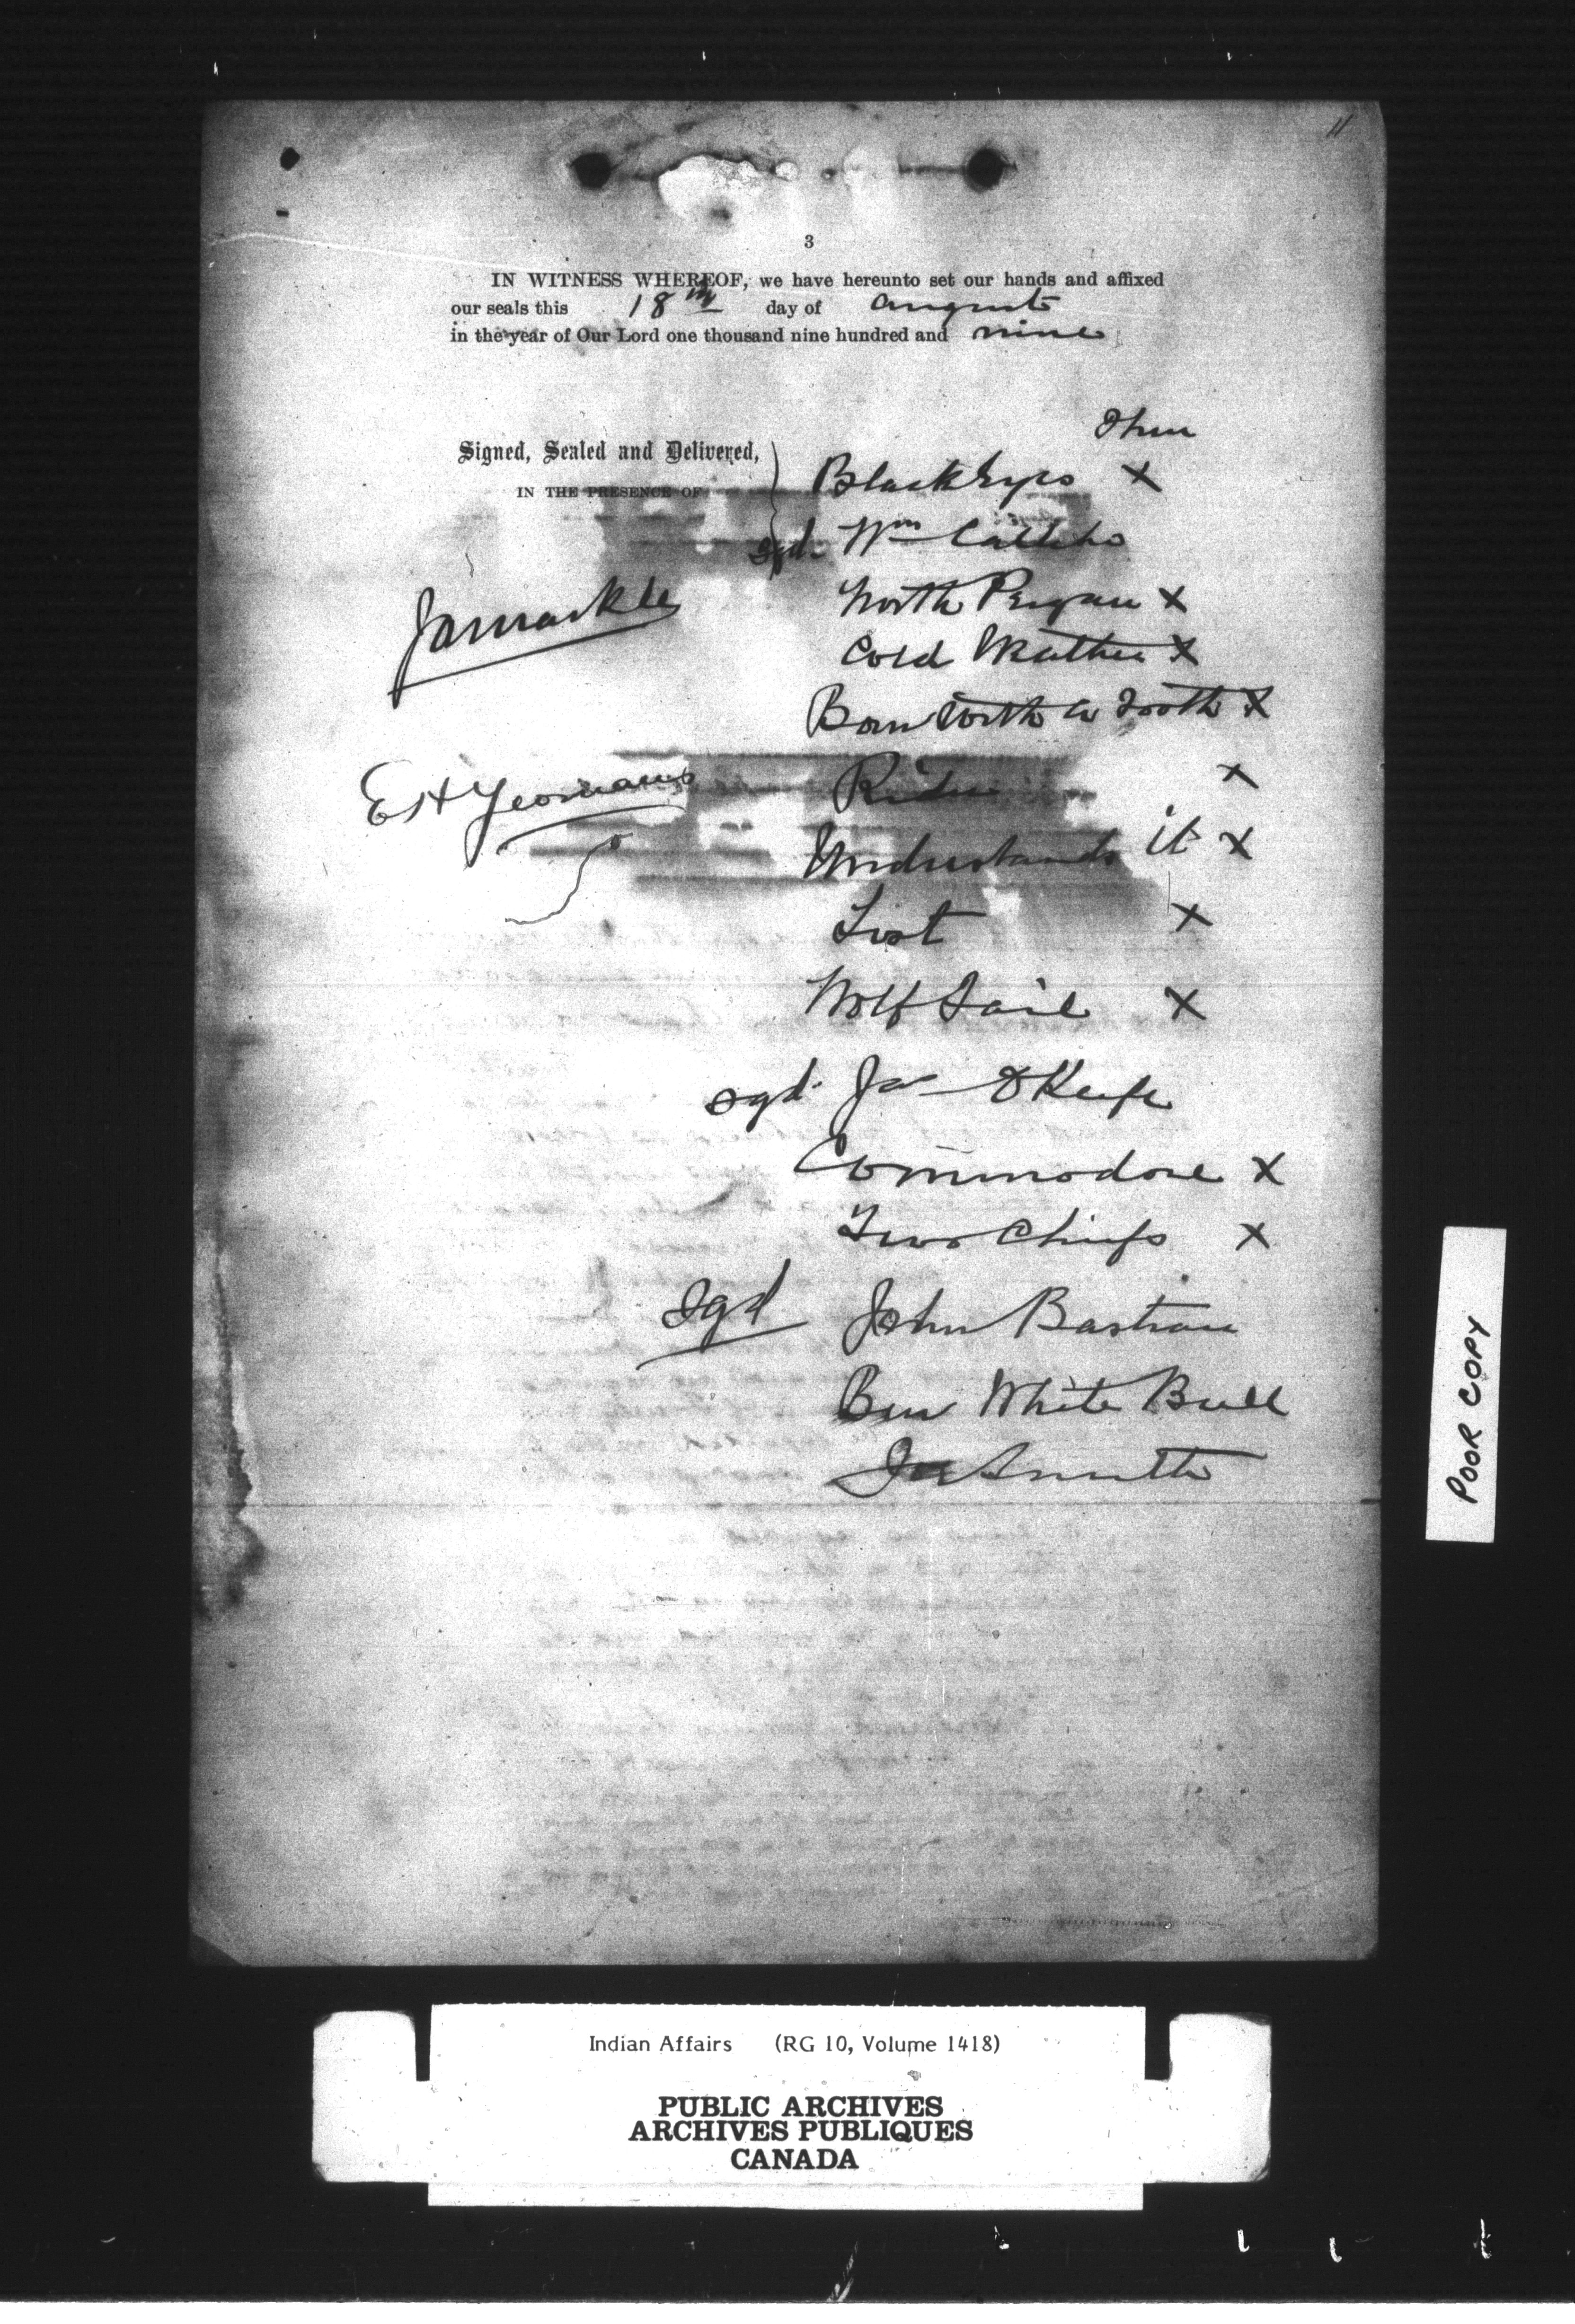 11
3
IN WITNESS WHEREOF, we have hereunto set our hands and affixed
our seals this 18th day of August
in the year of Our Lord one thousand nine hundred and nine
Signed, Sealed and Delivered,
IN THE PRESENCE OF
Their
Black Eyes X
sgd. Wm
North Peigan X
Cold Weather X
Born With a Tooth X
Rider X
Understands it X
List X
Wolf Tail X
sgd. Jas O'Keefe
Commodore X
Two Chiefs X
Sgd John Bastian
Ben White Bull
Joe Smith
J A Markle
E H Yeomans
POOR COPY
Indian Affairs (RG 10, Volume 1418)
PUBLIC ARCHIVES
ARCHIVES PUBLIQUES
CANADA